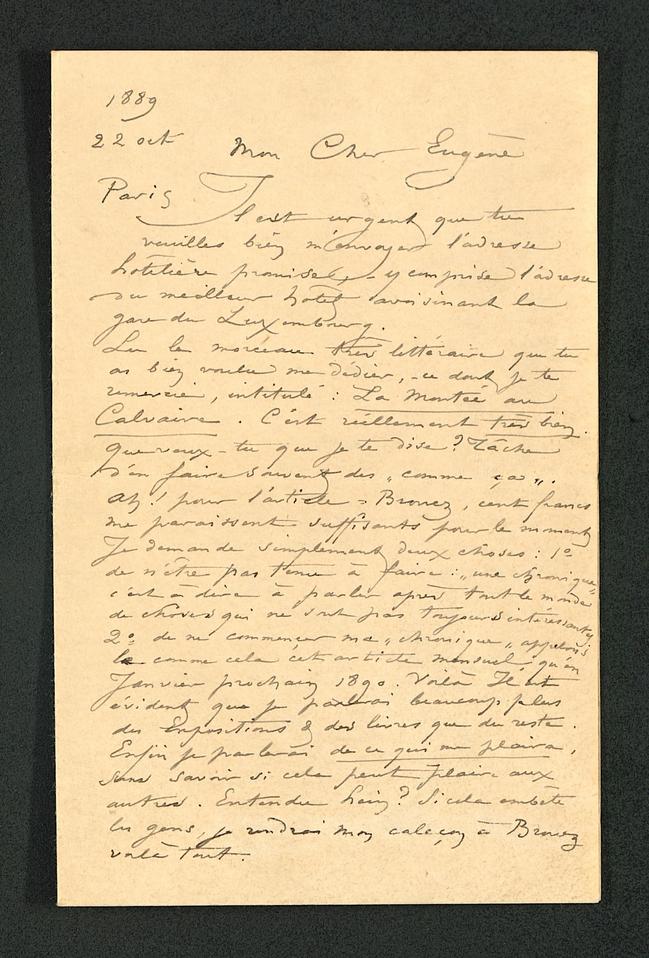 1889
22 oct Mon Cher Eugène
Paris Il est urgent que tu
veuilles bien m'envoyer l'adresse
hôtelière promise, - y comprise l'adresse
du meilleur hôtel avoisinant la
gare du Luxembourg.
Lu le morceau très littéraire que tu
as bien voulu me dédier, - ce dont je te
remercie, intitulé : La Montée au
Calvaire. C'est réellement très bien.
que veux-tu que je te dise ? Tâche
d'en faire souvent des „comme ça„.
Ah ! pour l'article = Brouez, cent francs
me paraissent suffisants pour le moment
Je demande simplement deux choses : 1º
de n'être pas tenu à faire : „une chronique„
c'est à dire à parler après tout le monde
de choses qui ne sont pas toujours intéressantes
2º de ne commencer ma „chronique„ appelons
la comme cela cet article mensuel qu'en
Janvier prochain 1890. Voilà Il est
évident que je parlerai beaucoup plus
des Expositions & des livres que du reste.
Enfin je parlerai de ce qui me plaira,
sans savoir si cela peut plaire aux
autres. Entendu hein ? Si cela embête
les gens, je rendrai mon caleçon à Brouez
voilà tout.